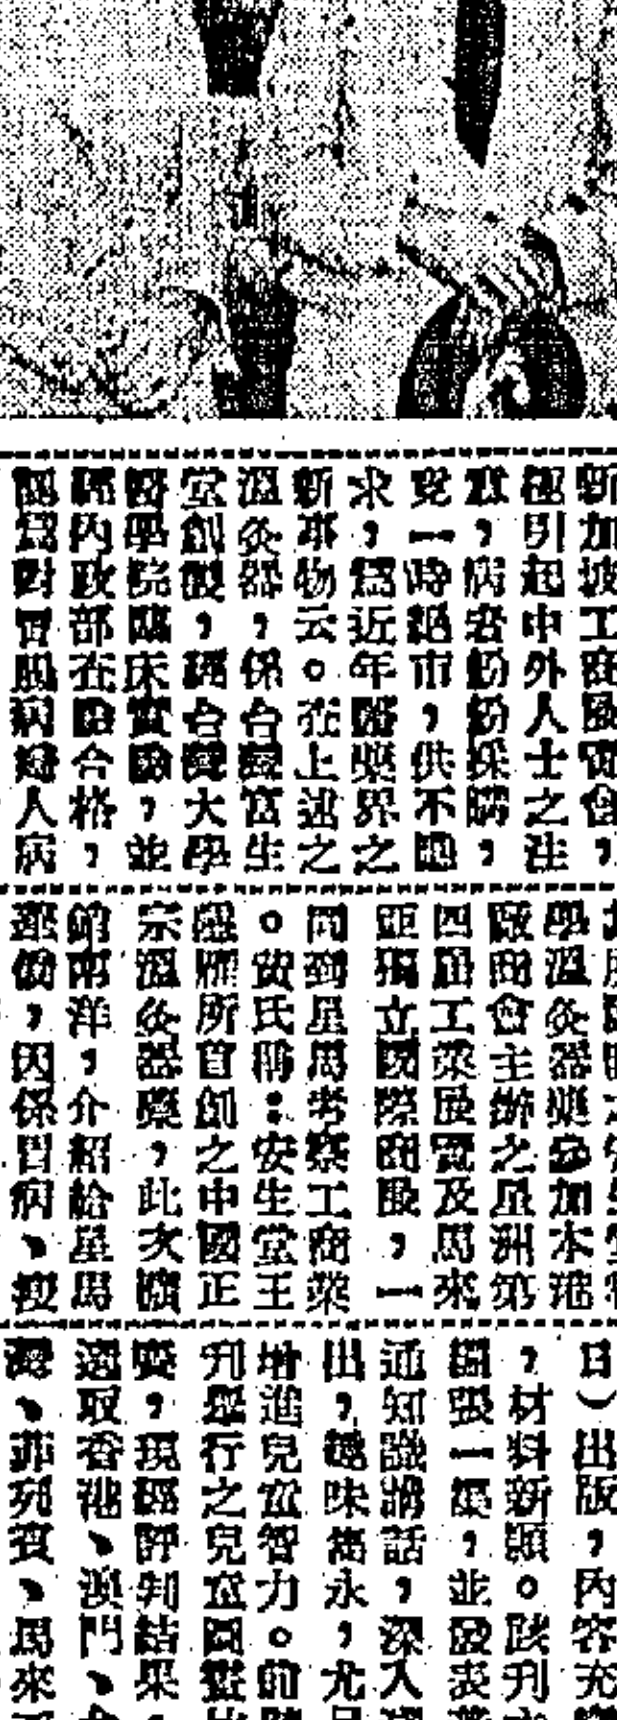 新加坡工商展覽會，
極引起中外人士之注
意，病者紛紛採購，
竟一時絕市，供不應
求，為近年醫藥界之
新事物云。在上述之
溫灸器，係台灣富生
堂創製，經台灣大學
醫學院臨床實驗，並
經內政部在驗合格，
認為對胃腸病婦人病
學溫灸器藥參加本港
廠商會主辦之星洲第
四屆工業展覽及馬來
亞獨立國際商展，一
同到星馬考察工商業
。黃氏稱：安生堂王
醫師所首創之中國正
宗溫灸器藥，此次擴
銷南洋，介紹給星馬
僑，因係胃病、
日）出版，內容充
，材料新穎。該刊
張一集，並發表
通知識講話，深入
出，趣味雋永，尤
增進兒童智力。前
刊舉行之兒童圖畫比
賽，現經評判結果，
選取香港、澳門、
灣、菲列賓、馬來